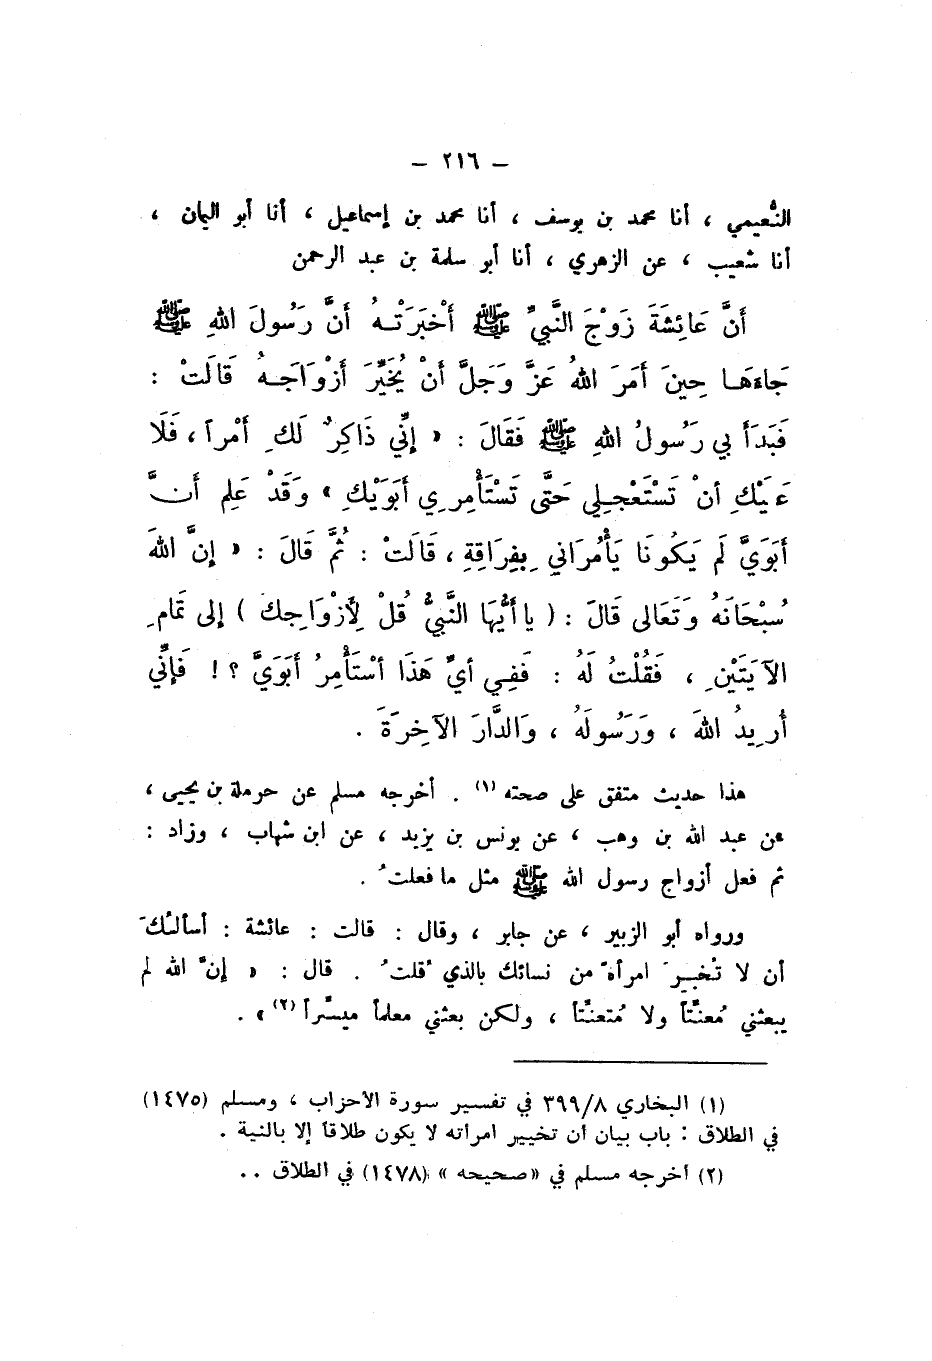 – ٢١٦ –
النُّعيمي ، أنا محمد بن يوسف ، أنا محمد بن إسماعيل ، أنا أبو اليمان ،
أنا شعيب ، عن الزهري ، أنا أبو سلمة بن عبد الرحمن
أَنَّ عَائِشَةَ زَوْجَ النَّبِيِّ ﷺ أَخْبَرَتْهُ أَنَّ رَسُولَ اللهِ ﷺ
جَاءَهَا حِينَ أَمَرَ اللهُ عَزَّ وَجَلَّ أَنْ يُخَيِّرَ أَزْوَاجَهُ قَالَتْ :
فَبَدَأَ بِي رَسُولُ اللهِ ﷺ فَقَالَ : « إِنِّي ذَاكِرٌ لَكِ أَمْراً ، فَلَا
عَلَيْكِ أَنْ تَسْتَعْجِلِي حَتَّى تَسْتَأْمِرِي أَبَوَيْكِ » وَقَدْ عَلِم أَنَّ
أَبَوَيَّ لَم يَكُونَا يَأْمُرَانِي بِفِرَاقِهِ ، قَالَتْ : ثُمَّ قَالَ : « إِنَّ اللهَ
سُبْحَانَهُ وَتَعَالى قَالَ : ( يا أَيُّهَا النَّبِيُّ قُلْ لِأَزْوَاجِكَ ) إلى تَمَامِ
الآيَتَيْنِ ، فَقُلْتُ لَهُ : فَفِي أَيِّ هَذَا أَسْتَأْمِرُ أَبَوَيَّ ؟ ! فَإِنِّي
أُرِيدُ اللهَ ، وَرَسُولَهُ ، وَالدَّارَ الآخِرَةَ .
هذا حديث متفق على صحته (١) . أخرجه مسلم عن حرملة بن يحيى ،
عن عبد الله بن وهب ، عن يونس بن يزيد ، عن ابن شهاب ، وزاد :
ثم فعل أزواج رسول الله ﷺ مثل ما فعلتُ .
ورواه أبو الزبير ، عن جابر ، وقال : قالت : عائشة : أسألُكَ
أن لا تُخبِرَ امرأةً من نسائك بالذي قلتُ . قال : « إنَّ الله لم
يبعثني مُعنِّتاً ولا مُتعنِّتاً ، ولكن بعثني معلماً ميسِّراً (٢) » .
(١) البخاري ٣٩٩/٨ في تفسير سورة الأحزاب ، ومسلم (١٤٧٥)
في الطلاق : باب بيان أن تخيير امرأته لا يكون طلاقاً إلا بالنية .
(٢) أخرجه مسلم في «صحيحه » (١٤٧٨) في الطلاق . .